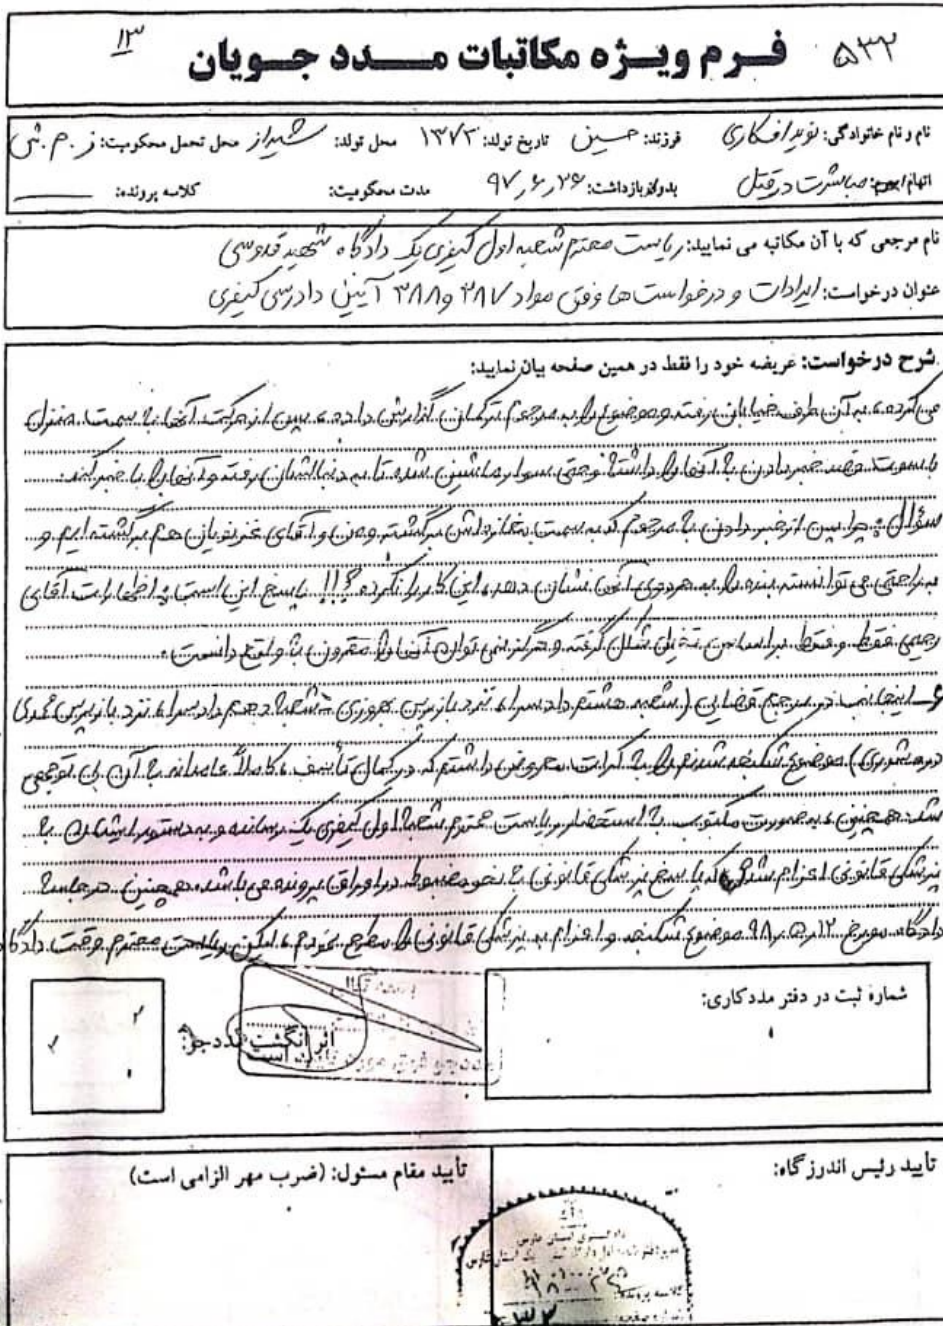 ۵۳۲ فرم ویژه مکاتبات مدد جویان ۱۳
نام و نام خانوادگی: نوید افکاری فرزند: حسین تاریخ تولد: ۱۳۷۲ محل تولد: شیراز محل تحمل محکومیت: ز.م.ش
اتهام: مباشرت در قتل بازداشت: ۹۷٫۶٫۲۶ مدت محکومیت: کلاسه پرونده:
نام مرجعی که با آن مکاتبه می نمایید: ریاست محترم شعبه اول کیفری یک دادگاه شهید قدوسی
عنوان درخواست: ایرادات و درخواست ها وفق مواد ۳۸۷ و ۳۸۸ آیین دادرسی کیفری
شرح درخواست: عریضه خود را فقط در همین صفحه بیان نمایید:
می کرده، به آن طرف خیابان رفته و موضوع را به مرحوم ترکمان گزارش داده، سپس از حرکت آنها به سمت منزل
با سوت قصد خبر دادن به آنها را داشته وحتی سوار ماشین شده تا به دنبالشان رفته و آنها را با خبر کند.
سؤال: چرا پس از خبر دادن به مرحوم که به سمت مغازه اش برگشته و من و آقای هم برگشته ایم و
به راحتی می توانسته بنده را به مرحوم نشان دهد، این کار را نکرده؟!! پاسخ این است که اظهارات آقای
رحیمی فقط و فقط بر اساس تخیل شکل گرفته و هرگز نمی توان آنها را مقرون به واقع دانست.
اینجانب در مرجع قضایی (شعبه هشتم دادسرا، نزد بازپرس شعبه دهم دادسرا، نزد بازپرس
) موضوع شکنجه شدنم را به کرات معروض داشتم که در کمال تأسف، کاملاً عامدانه به آن بی توجهی
شد. همچنین، به صورت مکتوب به استحضار ریاست محترم شعبه اول کیفری یک رسانده و به دستور ایشان به
پزشکی قانونی اعزام شدم که پاسخ پزشکی قانونی به نحو مضبوط در اوراق پرونده می باشد. همچنین در جلسه
دادگاه مورخ ۹۸٫۵٫۱۲ موضوع شکنجه و اعزام به پزشکی قانونی را مطرح نمودم، لیکن ریاست محترم وقت دادگاه
شماره ثبت در دفتر مددکاری:
بسمه تعالی
اثر انگشت مددجو:
مورد تایید است
تأیید رئیس اندرزگاه:
تأیید مقام مسئول: (ضرب مهر الزامی است)
دادگستری استان فارس
کلاسه پرونده: